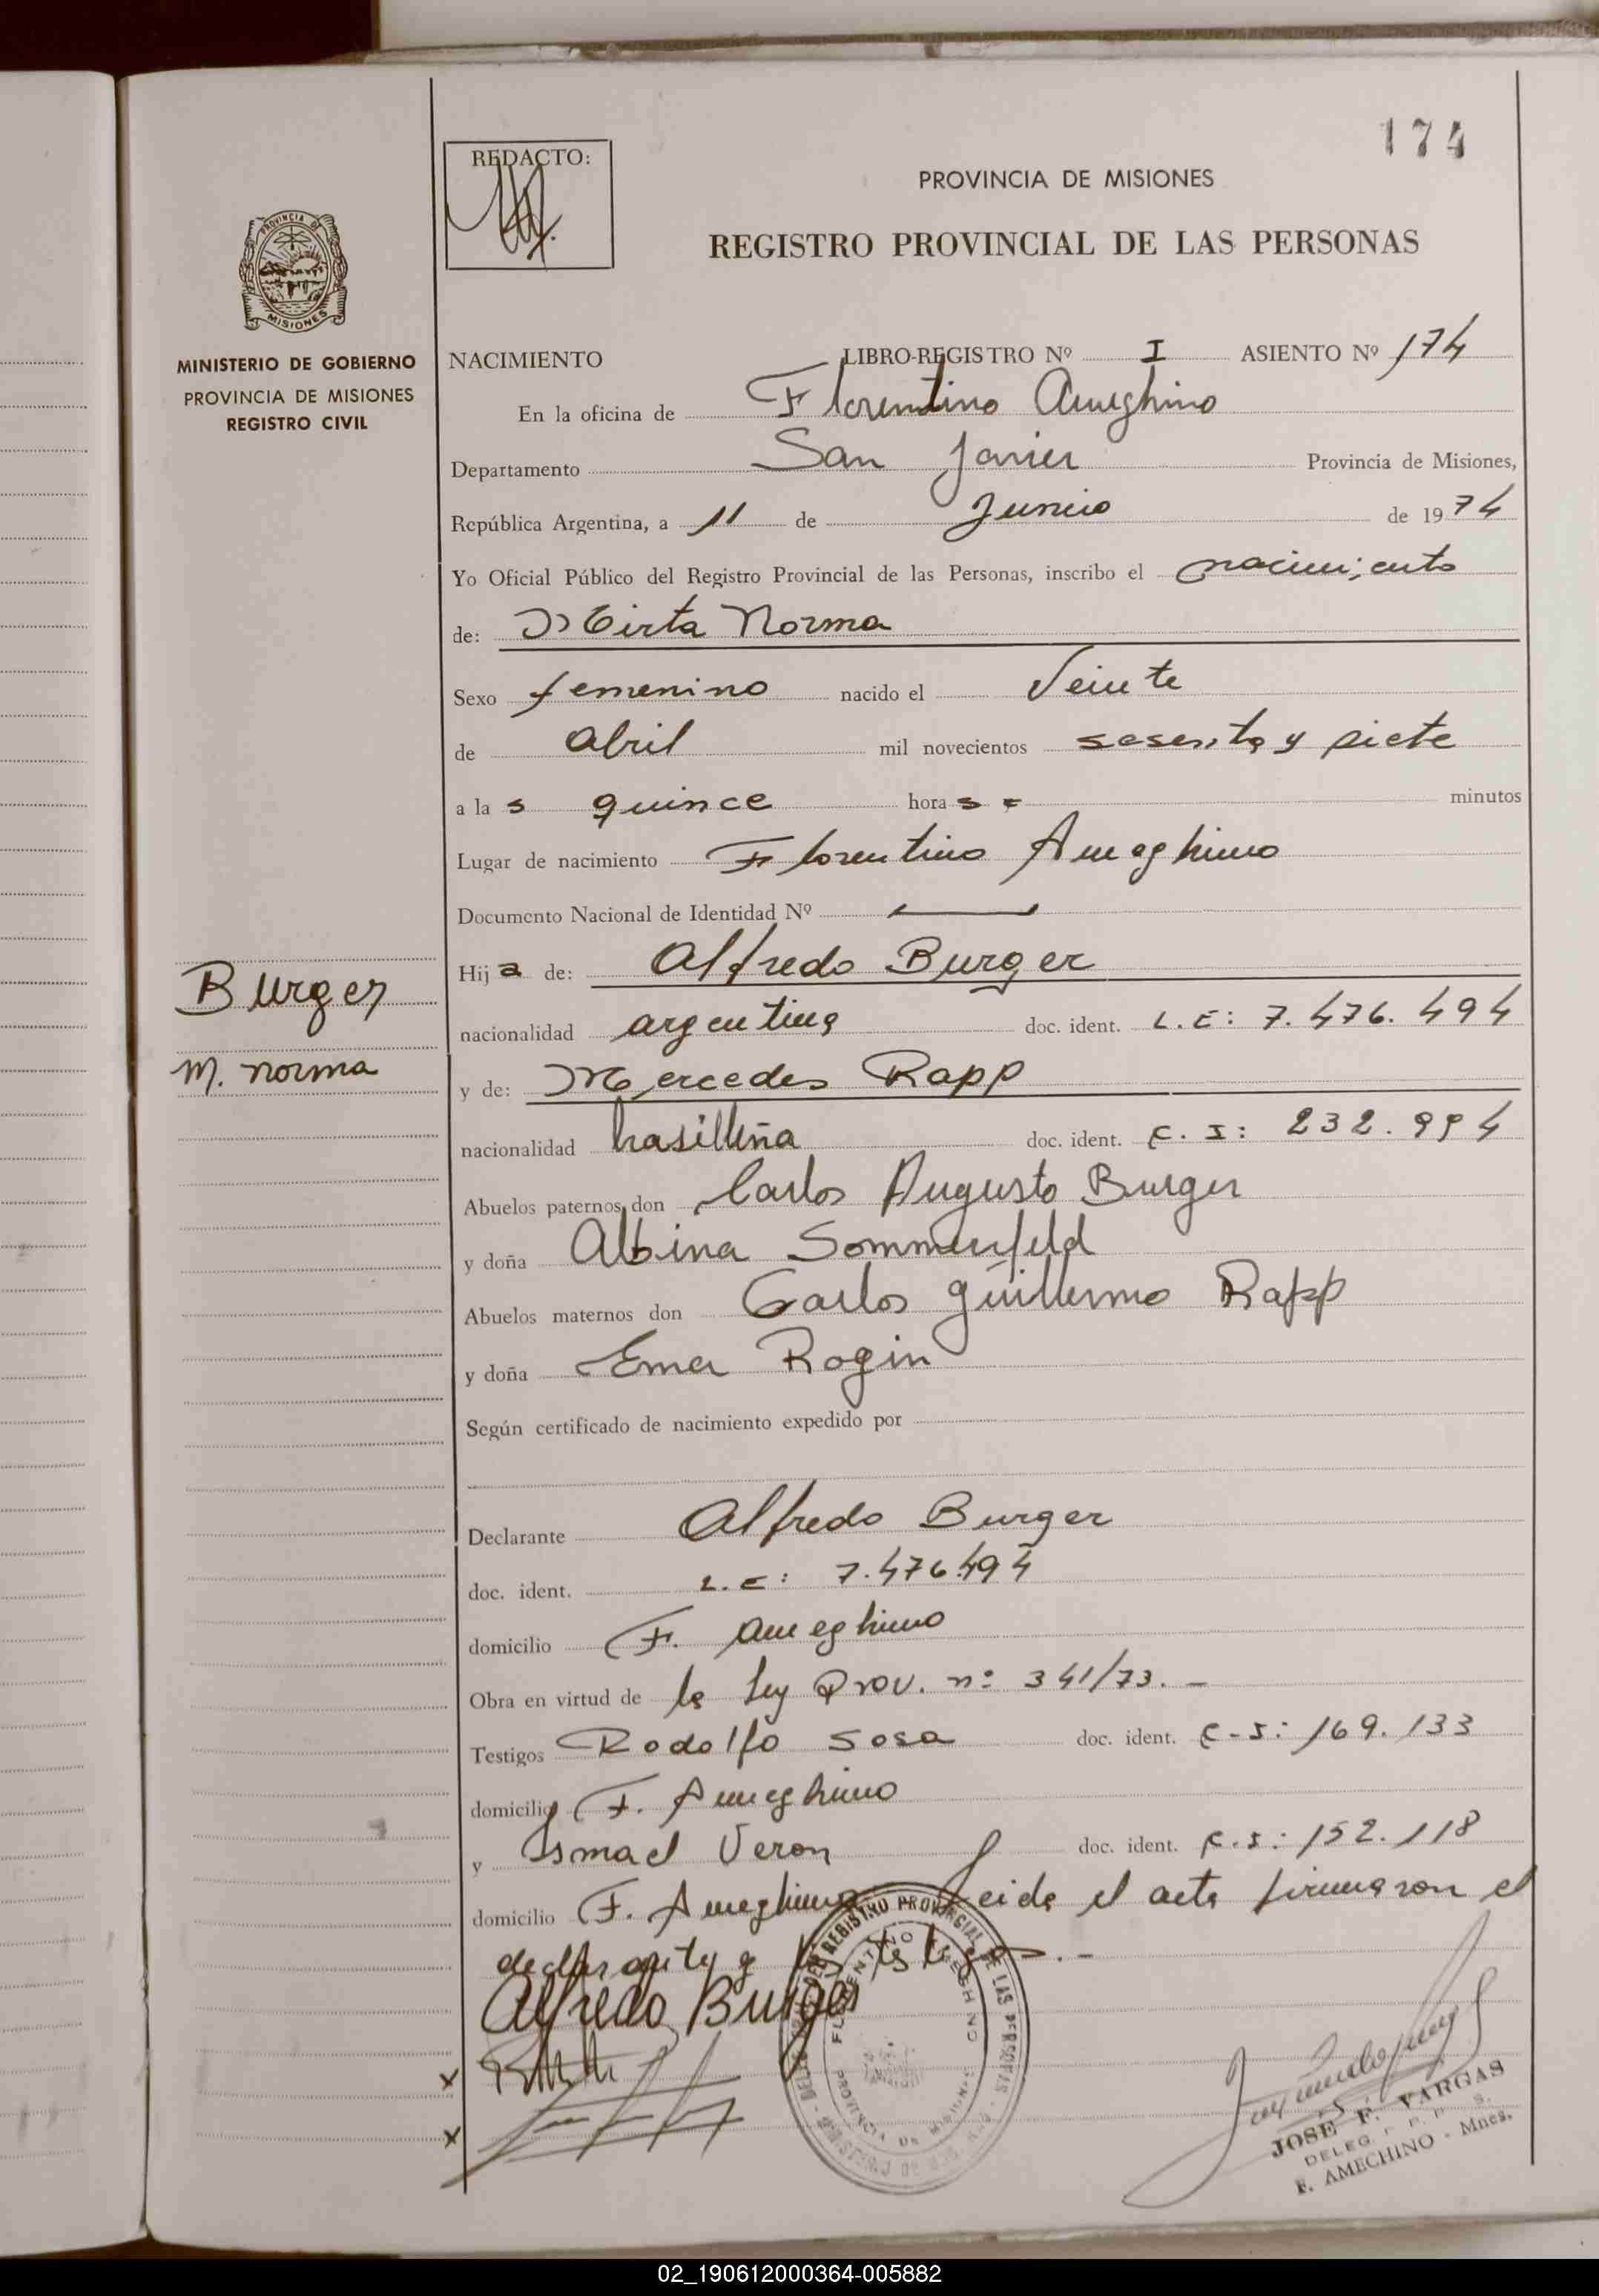 174
REDACTO:
PROVINCIA DE MISIONES
REGISTRO PROVINCIAL DE LAS PERSONAS
PROVINCIA DE
MISIONES
MINISTERIO DE GOBIERNO
PROVINCIA DE MISIONES
REGISTRO CIVIL
NACIMIENTO LIBRO-REGISTRO Nº I ASIENTO Nº 174
En la oficina de Florentino Ameghino
Departamento San Javier Provincia de Misiones,
República Argentina, a 11 de Junio de 1974
Yo Oficial Público del Registro Provincial de las Personas, inscribo el nacimiento
de: Mirta Norma
Sexo femenino nacido el Veinte
de abril mil novecientos sesenta y siete
a las quince horas = minutos
Lugar de nacimiento Florentino Ameghino
Documento Nacional de Identidad Nº —
Burger
M. Norma
Hija de: Alfredo Burger
nacionalidad argentina doc. ident. L.E: 7.476.494
y de: Mercedes Rapp
nacionalidad brasilleña doc. ident. C.I: 232.994
Abuelos paternos, don Carlos Augusto Burger
y doña Albina Sommerfeld
Abuelos maternos don Carlos Guillermo Rapp
y doña Ema Rogin
Según certificado de nacimiento expedido por
Declarante Alfredo Burger
doc. ident. L.E: 7.476.494
domicilio F. Ameghino
Obra en virtud de la Ley Prov. nº 341/73. -
Testigos Rodolfo Sosa doc. ident. C.I: 169.133
domicilio F. Ameghino
y Ismael Veron doc. ident. C.I: 152.118
domicilio F. Ameghino Leida el acta firmaron el
declarante y los testigos. -
Alfredo Burger
x
x
JOSE F. VARGAS
F. AMECHINO - Mnes.
02_190612000364-005882